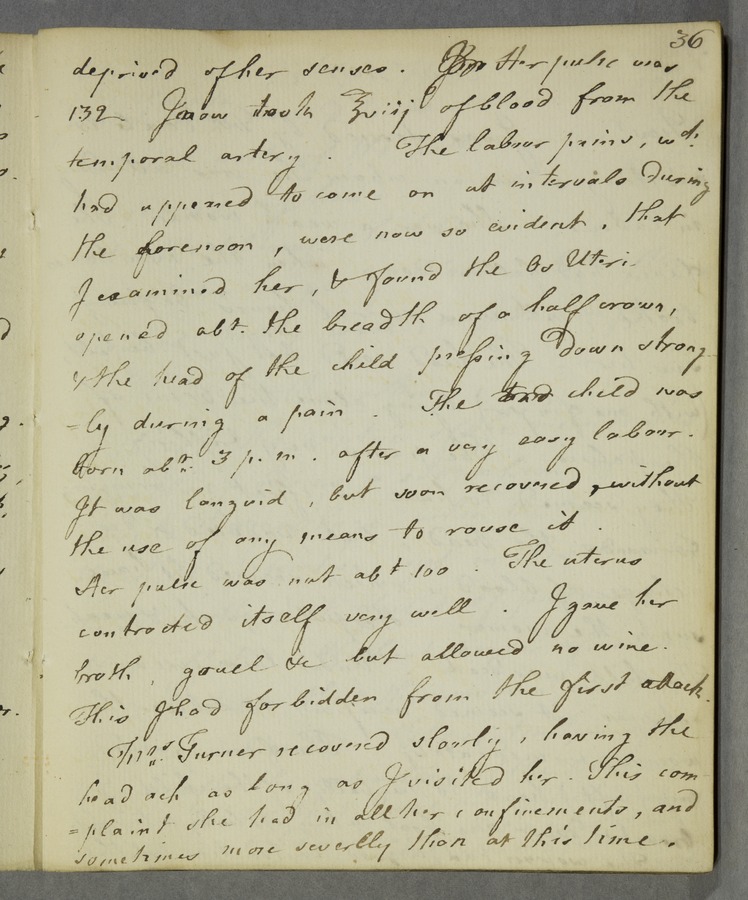 36
deprived of her senses. Her pulse was
132 I now took ℥viij of blood from the
temporal artery. The labour pains, wd.
had appeared to come on at intervals during
the forenoon, were now so evident, that
I examined her, & found the Os Uteri
opened abt. the breadth of a half crown,
& the head of the child pressing down strong
=ly during a pain. The child was
born abt. 3 p.m. after a very easy labour.
It was languid, but soon recovered, without
the use of any means to rouse it.
Her pulse was not abt 100. The uterus
contracted itself very well. I gave her
broth, gruel &c but allowed no wine.
This I had forbidden from the first attack.
Mrs. Turner recovered slowly, having the
head ach as long as I visited her. This com
=plaint she had in all her confinements, and
sometimes more severlly than at this time.